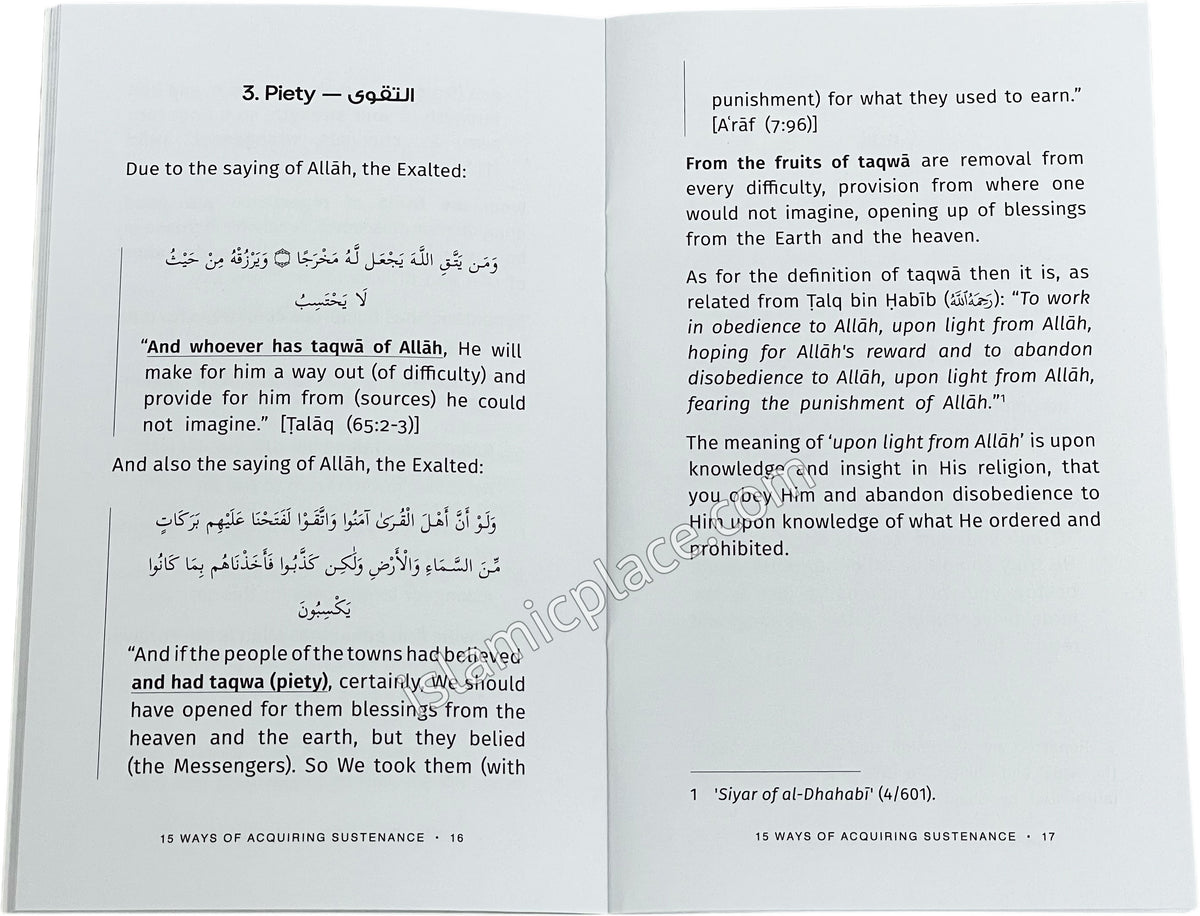 3. Piety — التقوى
Due to the saying of Allāh, the Exalted:
وَمَن يَتَّقِ اللَّهَ يَجْعَل لَّهُ مَخْرَجًا ۝ وَيَرْزُقْهُ مِنْ حَيْثُ
لَا يَحْتَسِبُ
“And whoever has taqwā of Allāh, He will
make for him a way out (of difficulty) and
provide for him from (sources) he could
not imagine.” [Ṭalāq (65:2-3)]
And also the saying of Allāh, the Exalted:
وَلَوْ أَنَّ أَهْلَ الْقُرَىٰ آمَنُوا وَاتَّقَوْا لَفَتَحْنَا عَلَيْهِم بَرَكَاتٍ
مِّنَ السَّمَاءِ وَالْأَرْضِ وَلَٰكِن كَذَّبُوا فَأَخَذْنَاهُم بِمَا كَانُوا
يَكْسِبُونَ
“And if the people of the towns had believed
and had taqwa (piety), certainly, We should
have opened for them blessings from the
heaven and the earth, but they belied
(the Messengers). So We took them (with
15 WAYS OF ACQUIRING SUSTENANCE • 16
punishment) for what they used to earn.”
[Aʿrāf (7:96)]
From the fruits of taqwā are removal from
every difficulty, provision from where one
would not imagine, opening up of blessings
from the Earth and the heaven.
As for the definition of taqwā then it is, as
related from Ṭalq bin Ḥabīb (رَحِمَهُ اللَّهُ): “To work
in obedience to Allāh, upon light from Allāh,
hoping for Allāh's reward and to abandon
disobedience to Allāh, upon light from Allāh,
fearing the punishment of Allāh.”1
The meaning of ‘upon light from Allāh’ is upon
knowledge and insight in His religion, that
you obey Him and abandon disobedience to
Him upon knowledge of what He ordered and
prohibited.
1 'Siyar of al-Dhahabī' (4/601).
15 WAYS OF ACQUIRING SUSTENANCE • 17
islamicplace.com